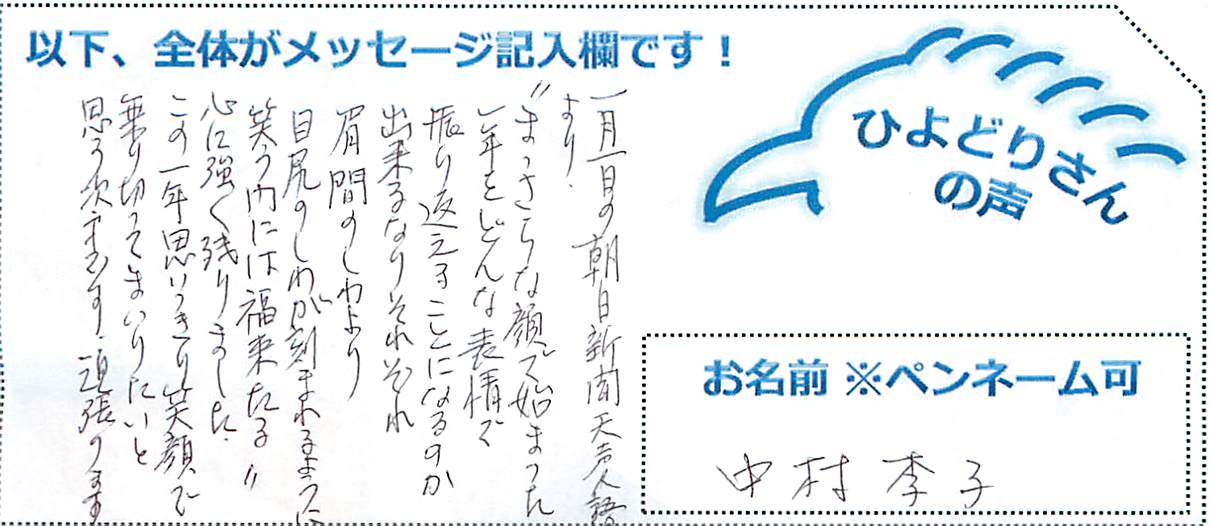 以下、全体がメッセージ記入欄です!
ひよどりさん
の声
一月一日の朝日新聞天声人語
より.
〃まっさらな顔で始まった
一年をどんな表情で
振り返えることになるのか
出来るなりそれぞれ
眉間のしわより
目尻のしわが刻まれるように
笑う内には福来たる〃
心に強く残りました.
この一年思いっきり笑顔で
乗り切ってまいりたいと
思う次第です.頑張ります
お名前 ※ペンネーム可
中村李子